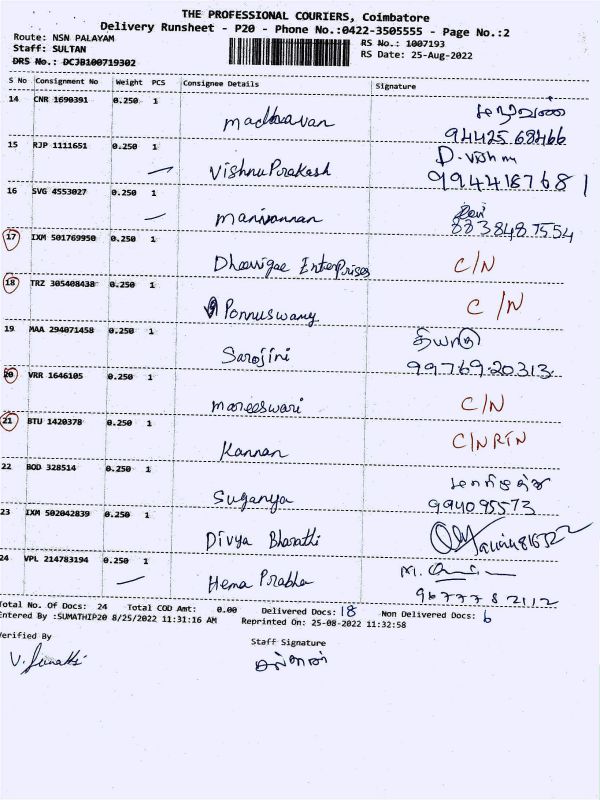 THE PROFESSIONAL COURIERS, Coimbatore
Delivery Runsheet - P20 - Phone No.:0422-3505555 - Page No.:2
Route: NSN PALAYAM
RS No.: 1007193
Staff: SULTAN
RS Date: 25-Aug-2022
DRS No.: DCJB100719302
S No Consignment No Weight PCS Consignee Details Signature
14 CNR 1690391 0.250 1 Madhavan
94425 68466
15 RJP 1111651 0.250 1 Vishnu Prakash D. Vishnu
9944187681
16 SVG 4553027 0.250 1 Manivannan
883848 7554
17 IXM 501769950 0.250 1 Enterprises C/N
18 TRZ 305408438 0.250 1 Ponnuswamy C/N
19 MAA 294071458 0.250 1 Sarojini
99769 20313
20 VRR 1646105 0.250 1 Mareeswari C/N
21 BTU 1420378 0.250 1 Kannan C/N RTN
22 BOD 328514 0.250 1 Suganya
994095573
23 IXM 502042839 0.250 1 Divya Bharathi
24 VPL 214783194 0.250 1 Hema Prabha M.
96777 82112
Total No. Of Docs: 24 Total COD Amt: 0.00 Delivered Docs: 18 Non Delivered Docs: 6
Entered By :SUMATHIP20 8/25/2022 11:31:16 AM Reprinted On: 25-08-2022 11:32:58
Verified By
Staff Signature